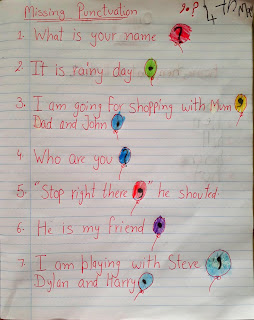 Missing Punctuation , . ?
1. What is your name ?
2. It is rainy day .
3. I am going for shopping with Mum ,
Dad and John .
4. Who are you .
5. "Stop right there !" he shouted.
6. He is my friend .
7. I am playing with Steve ,
Dylan and Harry .